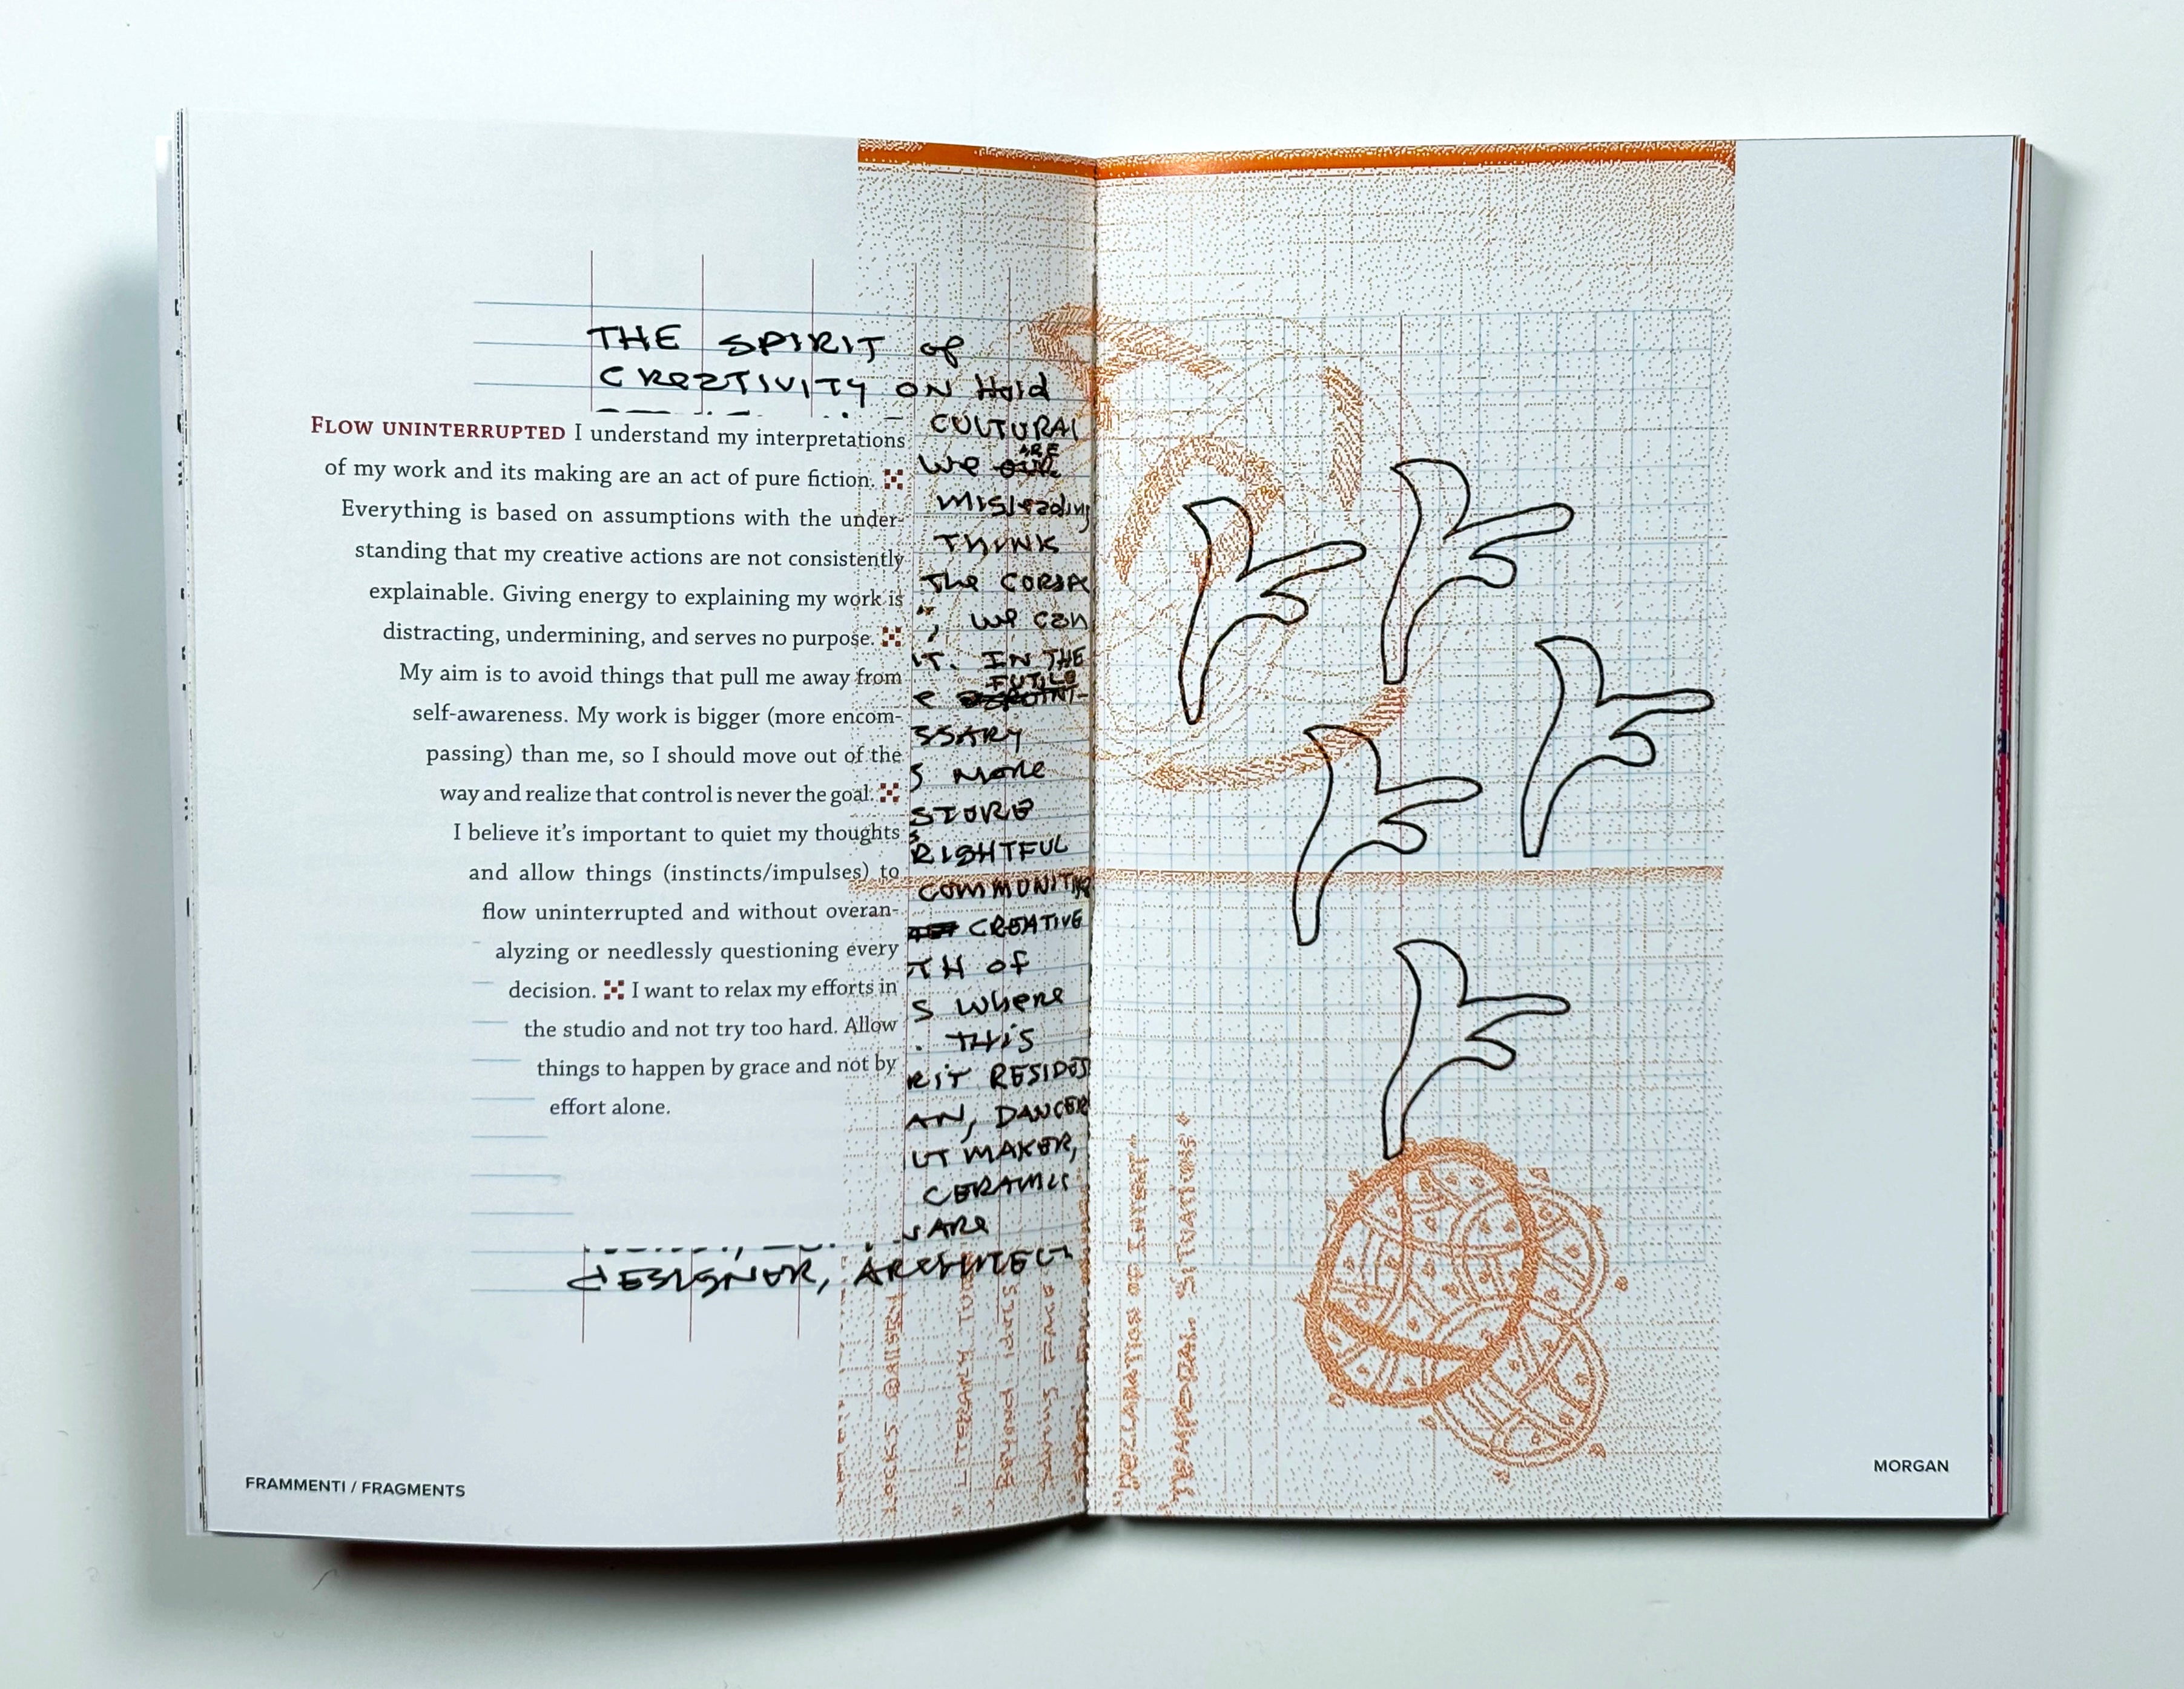 THE SPIRIT of
CREATIVITY ON Hold
FLOW UNINTERRUPTED I understand my interpretations
of my work and its making are an act of pure fiction.
Everything is based on assumptions with the under-
standing that my creative actions are not consistently
explainable. Giving energy to explaining my work is
distracting, undermining, and serves no purpose.
My aim is to avoid things that pull me away from
self-awareness. My work is bigger (more encom-
passing) than me, so I should move out of the
way and realize that control is never the goal.
I believe it's important to quiet my thoughts
and allow things (instincts/impulses) to
flow uninterrupted and without overan-
alyzing or needlessly questioning every
decision. I want to relax my efforts in
the studio and not try too hard. Allow
things to happen by grace and not by
effort alone.
CULTURAL
we ARE
misleading
THINK
The
, we can
IT. IN THE
FUTILE
SSARY
S more
STORE
RIGHTFUL
COMMUNITIES
CREATIVE
TH of
S where
. THIS
RIT RESIDES
AN, DANCER
UT MAKER,
CERAMIC
ARE
dESIGNER, ARCHITECT
"TEMPORAL SITUATIONS"
FRAMMENTI / FRAGMENTS
MORGAN